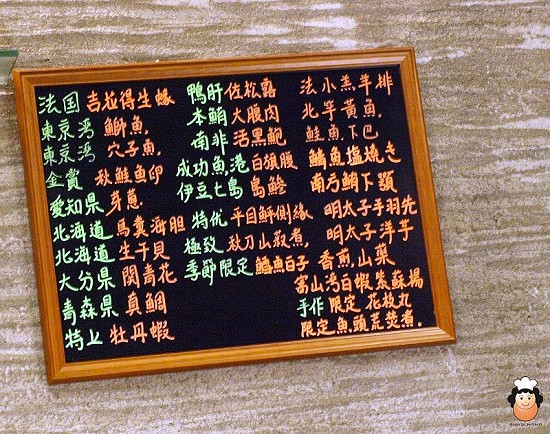 法国 吉拉得生蠔
東京湾 鰤魚
東京湾 穴子魚
金賞 秋鮭魚卵
愛知県 芽蔥
北海道 馬糞海胆
北海道 生干貝
大分県 関青花
青森県 真鯛
特上 牡丹蝦
鴨肝佐松露
本鮪 大腹肉
南非 活黑鮑
成功魚港 白旗腹
伊豆七島 島鯵
特优 平目鮃側緣
極致 秋刀山葵煮
季節限定 鱈魚白子
法小羔羊排
北竿黃魚
鮭魚下巴
鯛魚塩焼き
南方鮪下顎
明太子手羽先
明太子洋芋
香煎山藥
富山湾白蝦紫蘇揚
手作限定花枝丸
限定魚頭荒焚煮